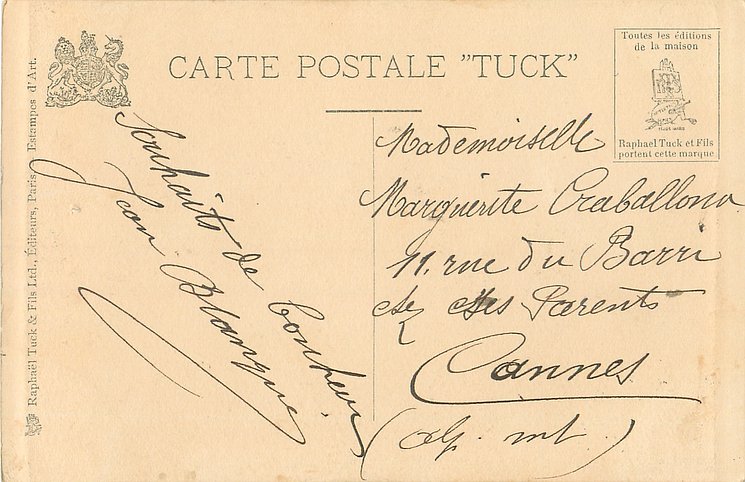 CARTE POSTALE "TUCK"
Toutes les éditions
de la maison
Raphael Tuck et Fils
portent cette marque
Raphaël Tuck & Fils Ltd., Éditeurs, Paris. Estampes d'Art.
Souhaits de bonheur
Jean Blanque
Mademoiselle
Marguerite Craballona
11. rue du Barri
chez ses Parents
Cannes
(alp. mt.)